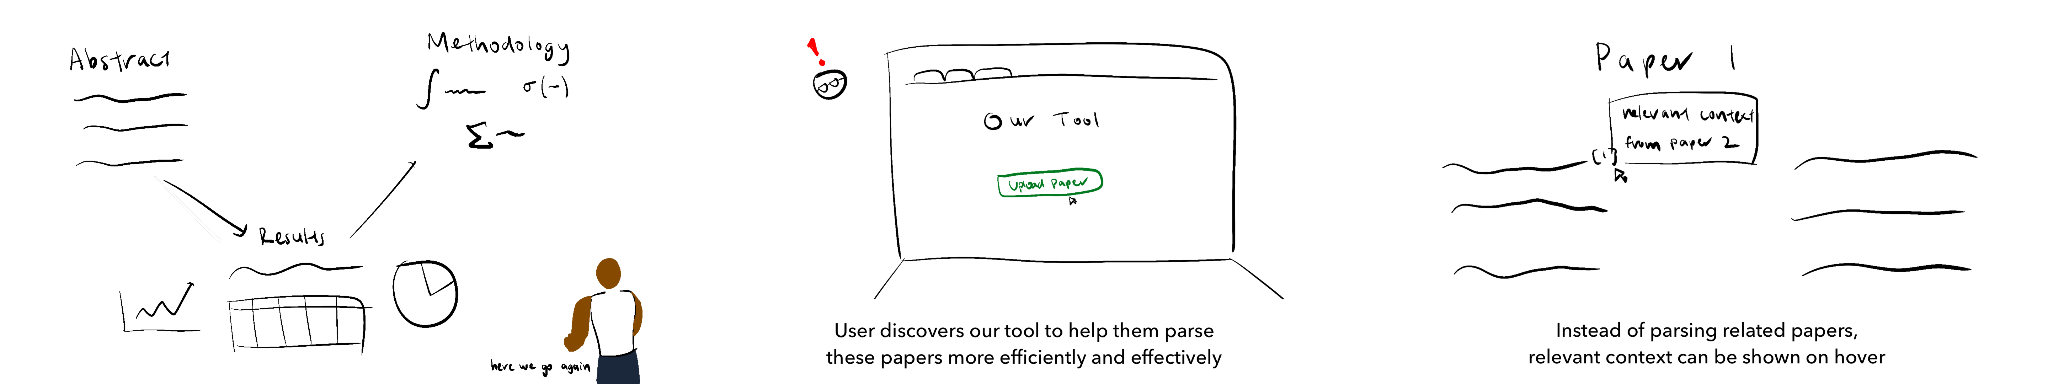 Abstract
Methodology
∫ σ(~)
Σ~
Results
here we go again
!
Our Tool
Upload Paper
User discovers our tool to help them parse
these papers more efficiently and effectively
Paper 1
relevant context
from paper 2
[1]
Instead of parsing related papers,
relevant context can be shown on hover